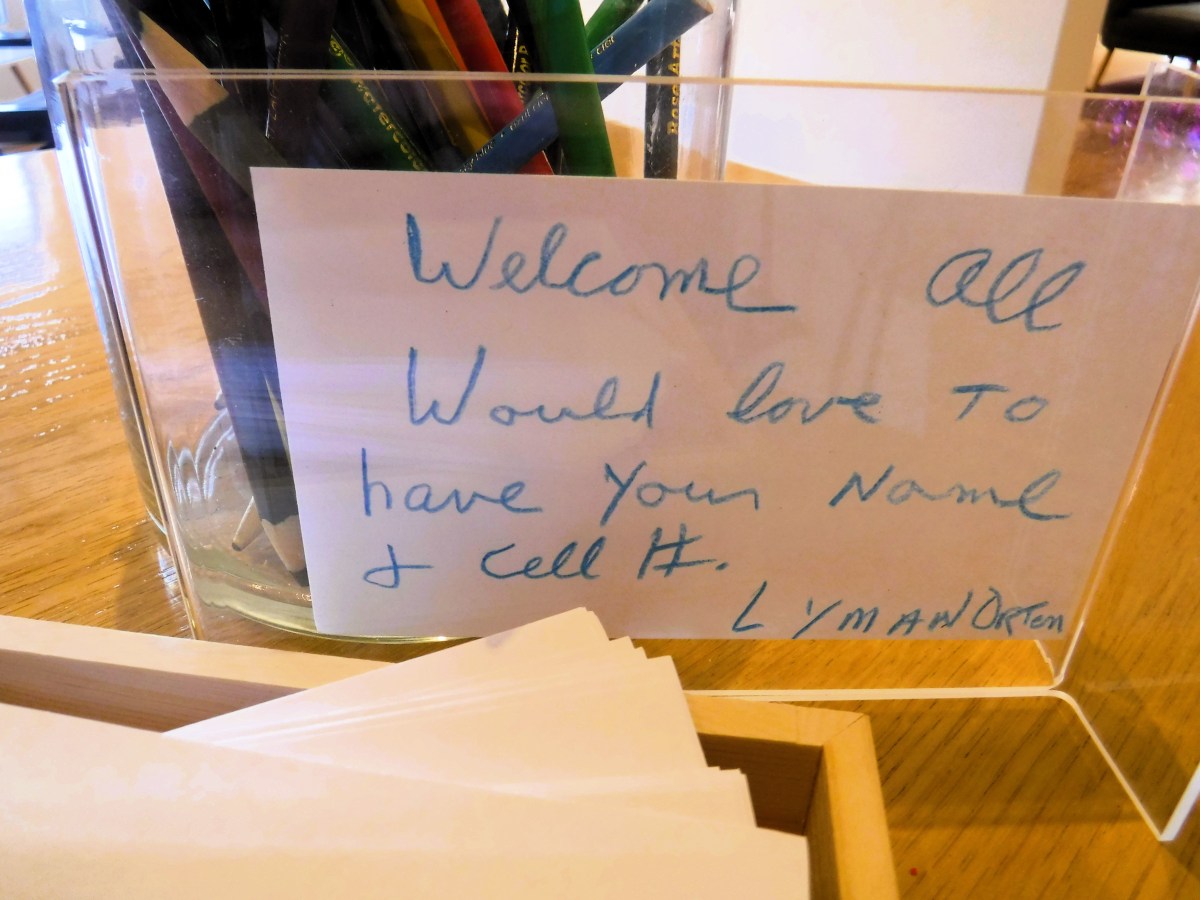 Welcome All
Would love to
have your Name
& Cell #.
LYMAN ORTON